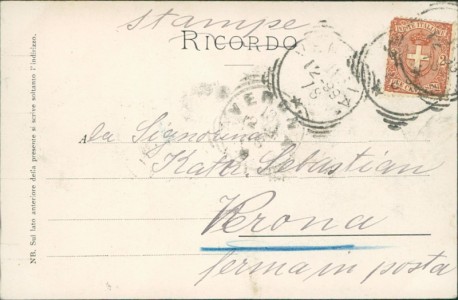 stampe
RICORDO
POSTE ITALIANE
2
VENEZIA
VERONA
A
la Signorina
Kata Sebastian
Verona
ferma in posta
NB. Sul lato anteriore della presente si scrive soltanto l'indirizzo.